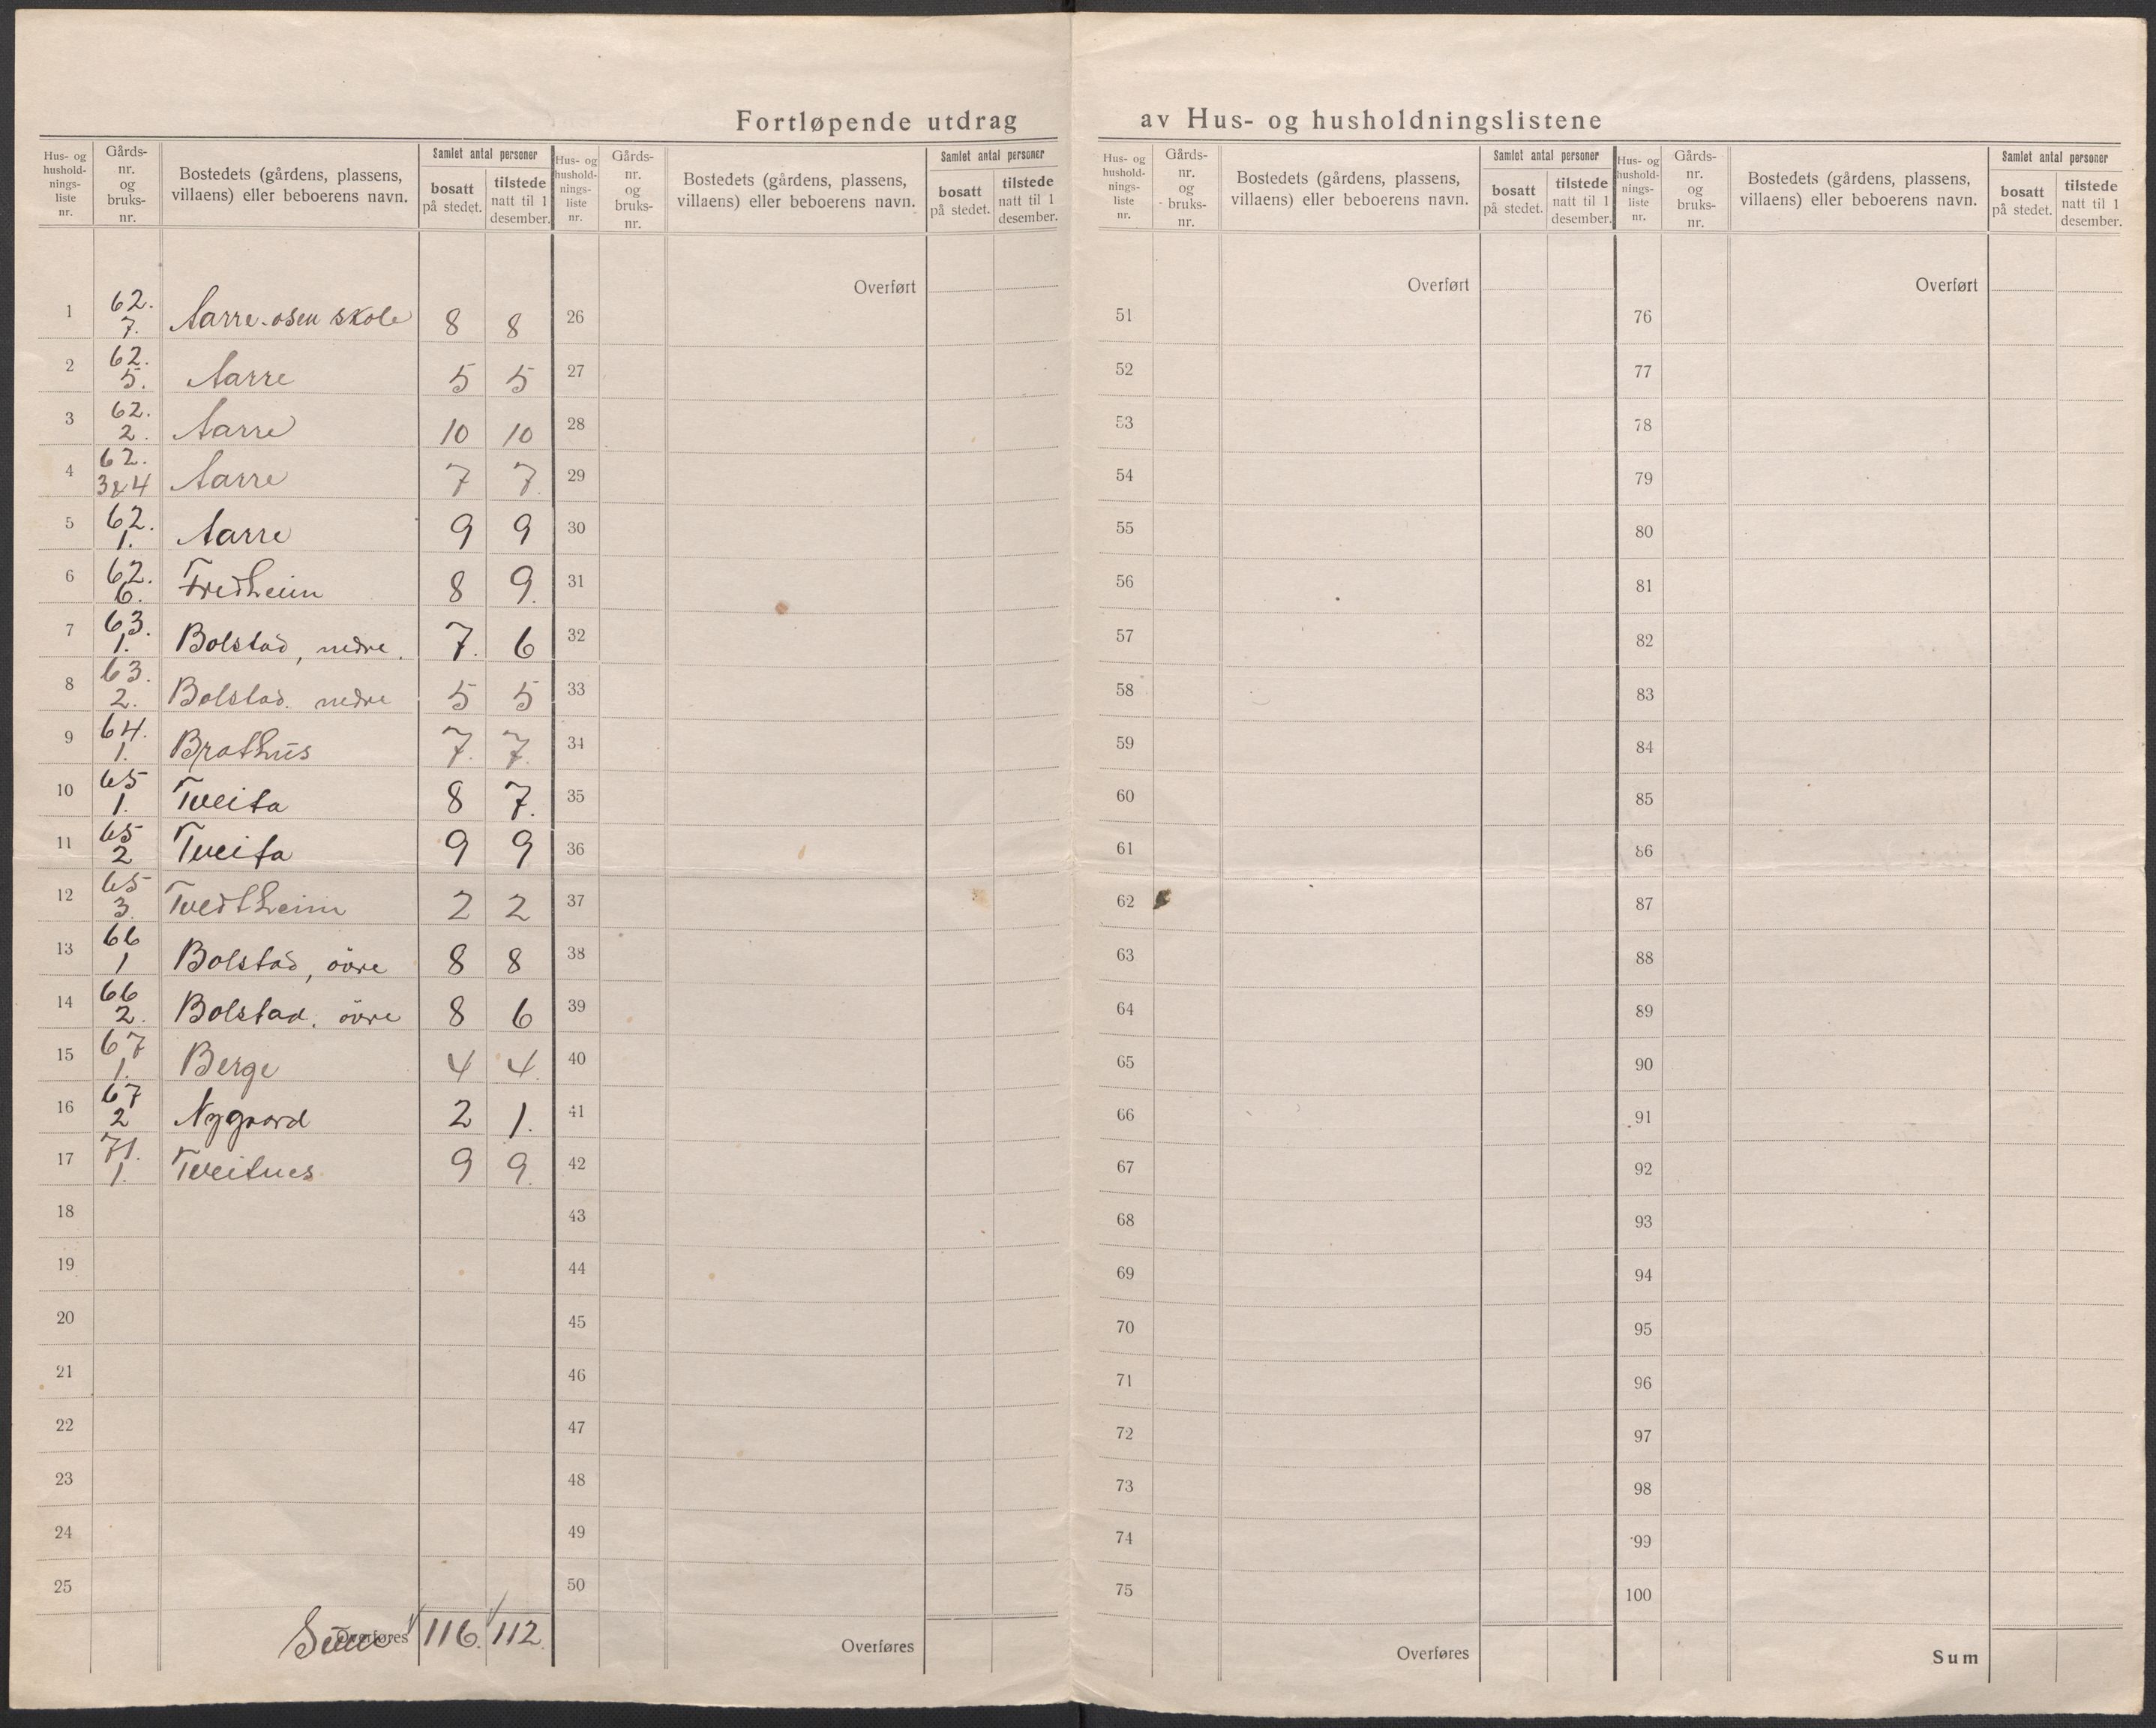 Fortløpende utdrag av Hus- og husholdningslistene
Hus- og hushold-nings-liste nr. Gårds-nr. og bruks-nr. Bostedets (gårdens, plassens, villaens) eller beboerens navn. Samlet antal personer bosatt på stedet. tilstede natt til 1 desember.
1 62. 7. Aarre-osen skole 8 8
2 62. 5. Aarre 5 5
3 62. 2. Aarre 10 10
4 62. 3&4 Aarre 7 7.
5 62. 1. Aarre 9 9
6 62. 6. Fredheim 8 9.
7 63. 1. Bolstad, nedre. 7. 6
8 63. 2. Bolstad. nedre 5 5
9 64. 1. Brathus 7. 7.
10 65 1. Tveita 8 7.
11 65 2 Tveita 9 9
12 65 3. Tvedtheim 2 2
13 66 1 Bolstad, övre 8 8
14 66 2. Bolstad. övre 8 6
15 67 1. Berge 4 4.
16 67 2 Nygaard 2 1.
17 71. 1. Tveitnes 9 9.
18
19
20
21
22
23
24
25
Overføres Sum 116. 112.
Hus- og hushold-nings-liste nr. Gårds-nr. og bruks-nr. Bostedets (gårdens, plassens, villaens) eller beboerens navn. Samlet antal personer bosatt på stedet. tilstede natt til 1 desember.
Overført
26
27
28
29
30
31
32
33
34
35
36
37
38
39
40
41
42
43
44
45
46
47
48
49
50
Overføres
Hus- og hushold-nings-liste nr. Gårds-nr. og bruks-nr. Bostedets (gårdens, plassens, villaens) eller beboerens navn. Samlet antal personer bosatt på stedet. tilstede natt til 1 desember.
Overført
51
52
53
54
55
56
57
58
59
60
61
62
63
64
65
66
67
68
69
70
71
72
73
74
75
Overføres
Hus- og hushold-nings-liste nr. Gårds-nr. og bruks-nr. Bostedets (gårdens, plassens, villaens) eller beboerens navn. Samlet antal personer bosatt på stedet. tilstede natt til 1 desember.
Overført
76
77
78
79
80
81
82
83
84
85
86
87
88
89
90
91
92
93
94
95
96
97
98
99
100
Sum